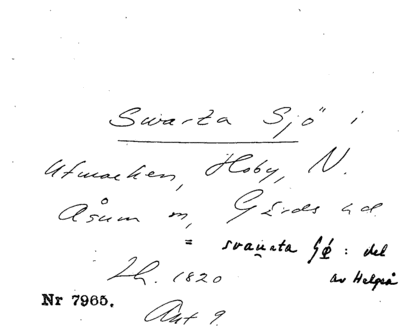 Swarta Sjö i
Utmarken, Hoby, N.
Åsum sn, Gärds hd.
= svarta : del
av Helgeå
Lh. 1820
Nr 7965.
Akt 9